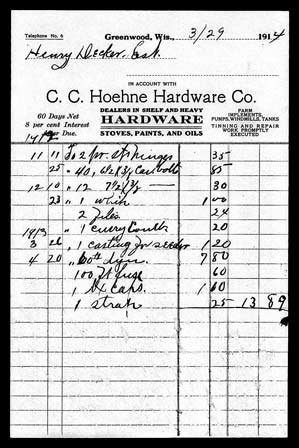 Telephone No. 6
Greenwood, Wis., 3/29 1914
Henry Decker, Est.
IN ACCOUNT WITH
C. C. Hoehne Hardware Co.
60 Days Net
8 per cent Interest
When Due.
DEALERS IN SHELF AND HEAVY
HARDWARE
STOVES, PAINTS, AND OILS
FARM
IMPLEMENTS,
PUMPS, WINDMILLS, TANKS
TINNING AND REPAIR
WORK PROMPTLY
EXECUTED
1912
11 11 To 2 pr. St. Hinges 35
25 " 40, 6 1/2 x 3/8 Car bolts 85
12 10 " 12 7 1/2 x 3/8 — 30
23 " 1 1 00
2 Files 24
1913 " 1 emery 20
3 26 " 1 casting for seeder 1 20
4 20 " 60# dyn. 7 80
100 ft fuse 60
1 bx caps. 1 60
1 strap 25 13 89